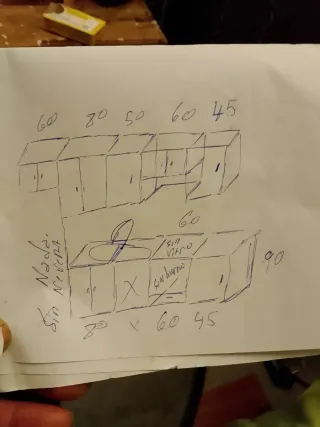 60 80 50 60 45
60
sin vitro
sin horno
90
Sin Nada.
Sin NEVERA
80 x 60 45